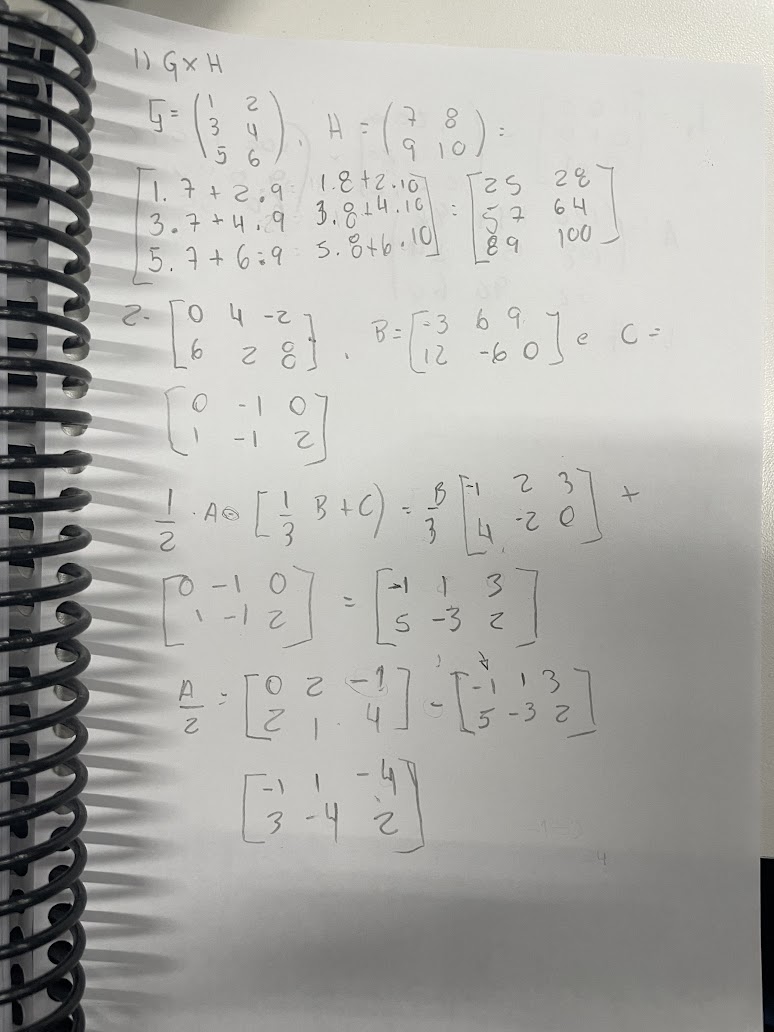 1) G×H
G = (1 2
3 4
5 6), H = (7 8
9 10) =
[1.7 + 2.9 1.8+2.10
3.7+4.9 3.8+4.10
5.7+6.9 5.8+6.10] = [25 28
57 64
89 100]
2- [0 4 -2
6 2 8], B = [-3 6 9
12 -6 0] e C =
[0 -1 0
1 -1 2]
1/2 . A - [1/3 B + C) = B/3 [-1 2 3
4 -2 0] +
[0 -1 0
1 -1 2] = [-1 1 3
5 -3 2]
A/2 = [0 2 -1
2 1 4] - [-1 1 3
5 -3 2]
[-1 1 -4
3 -4 2]
4